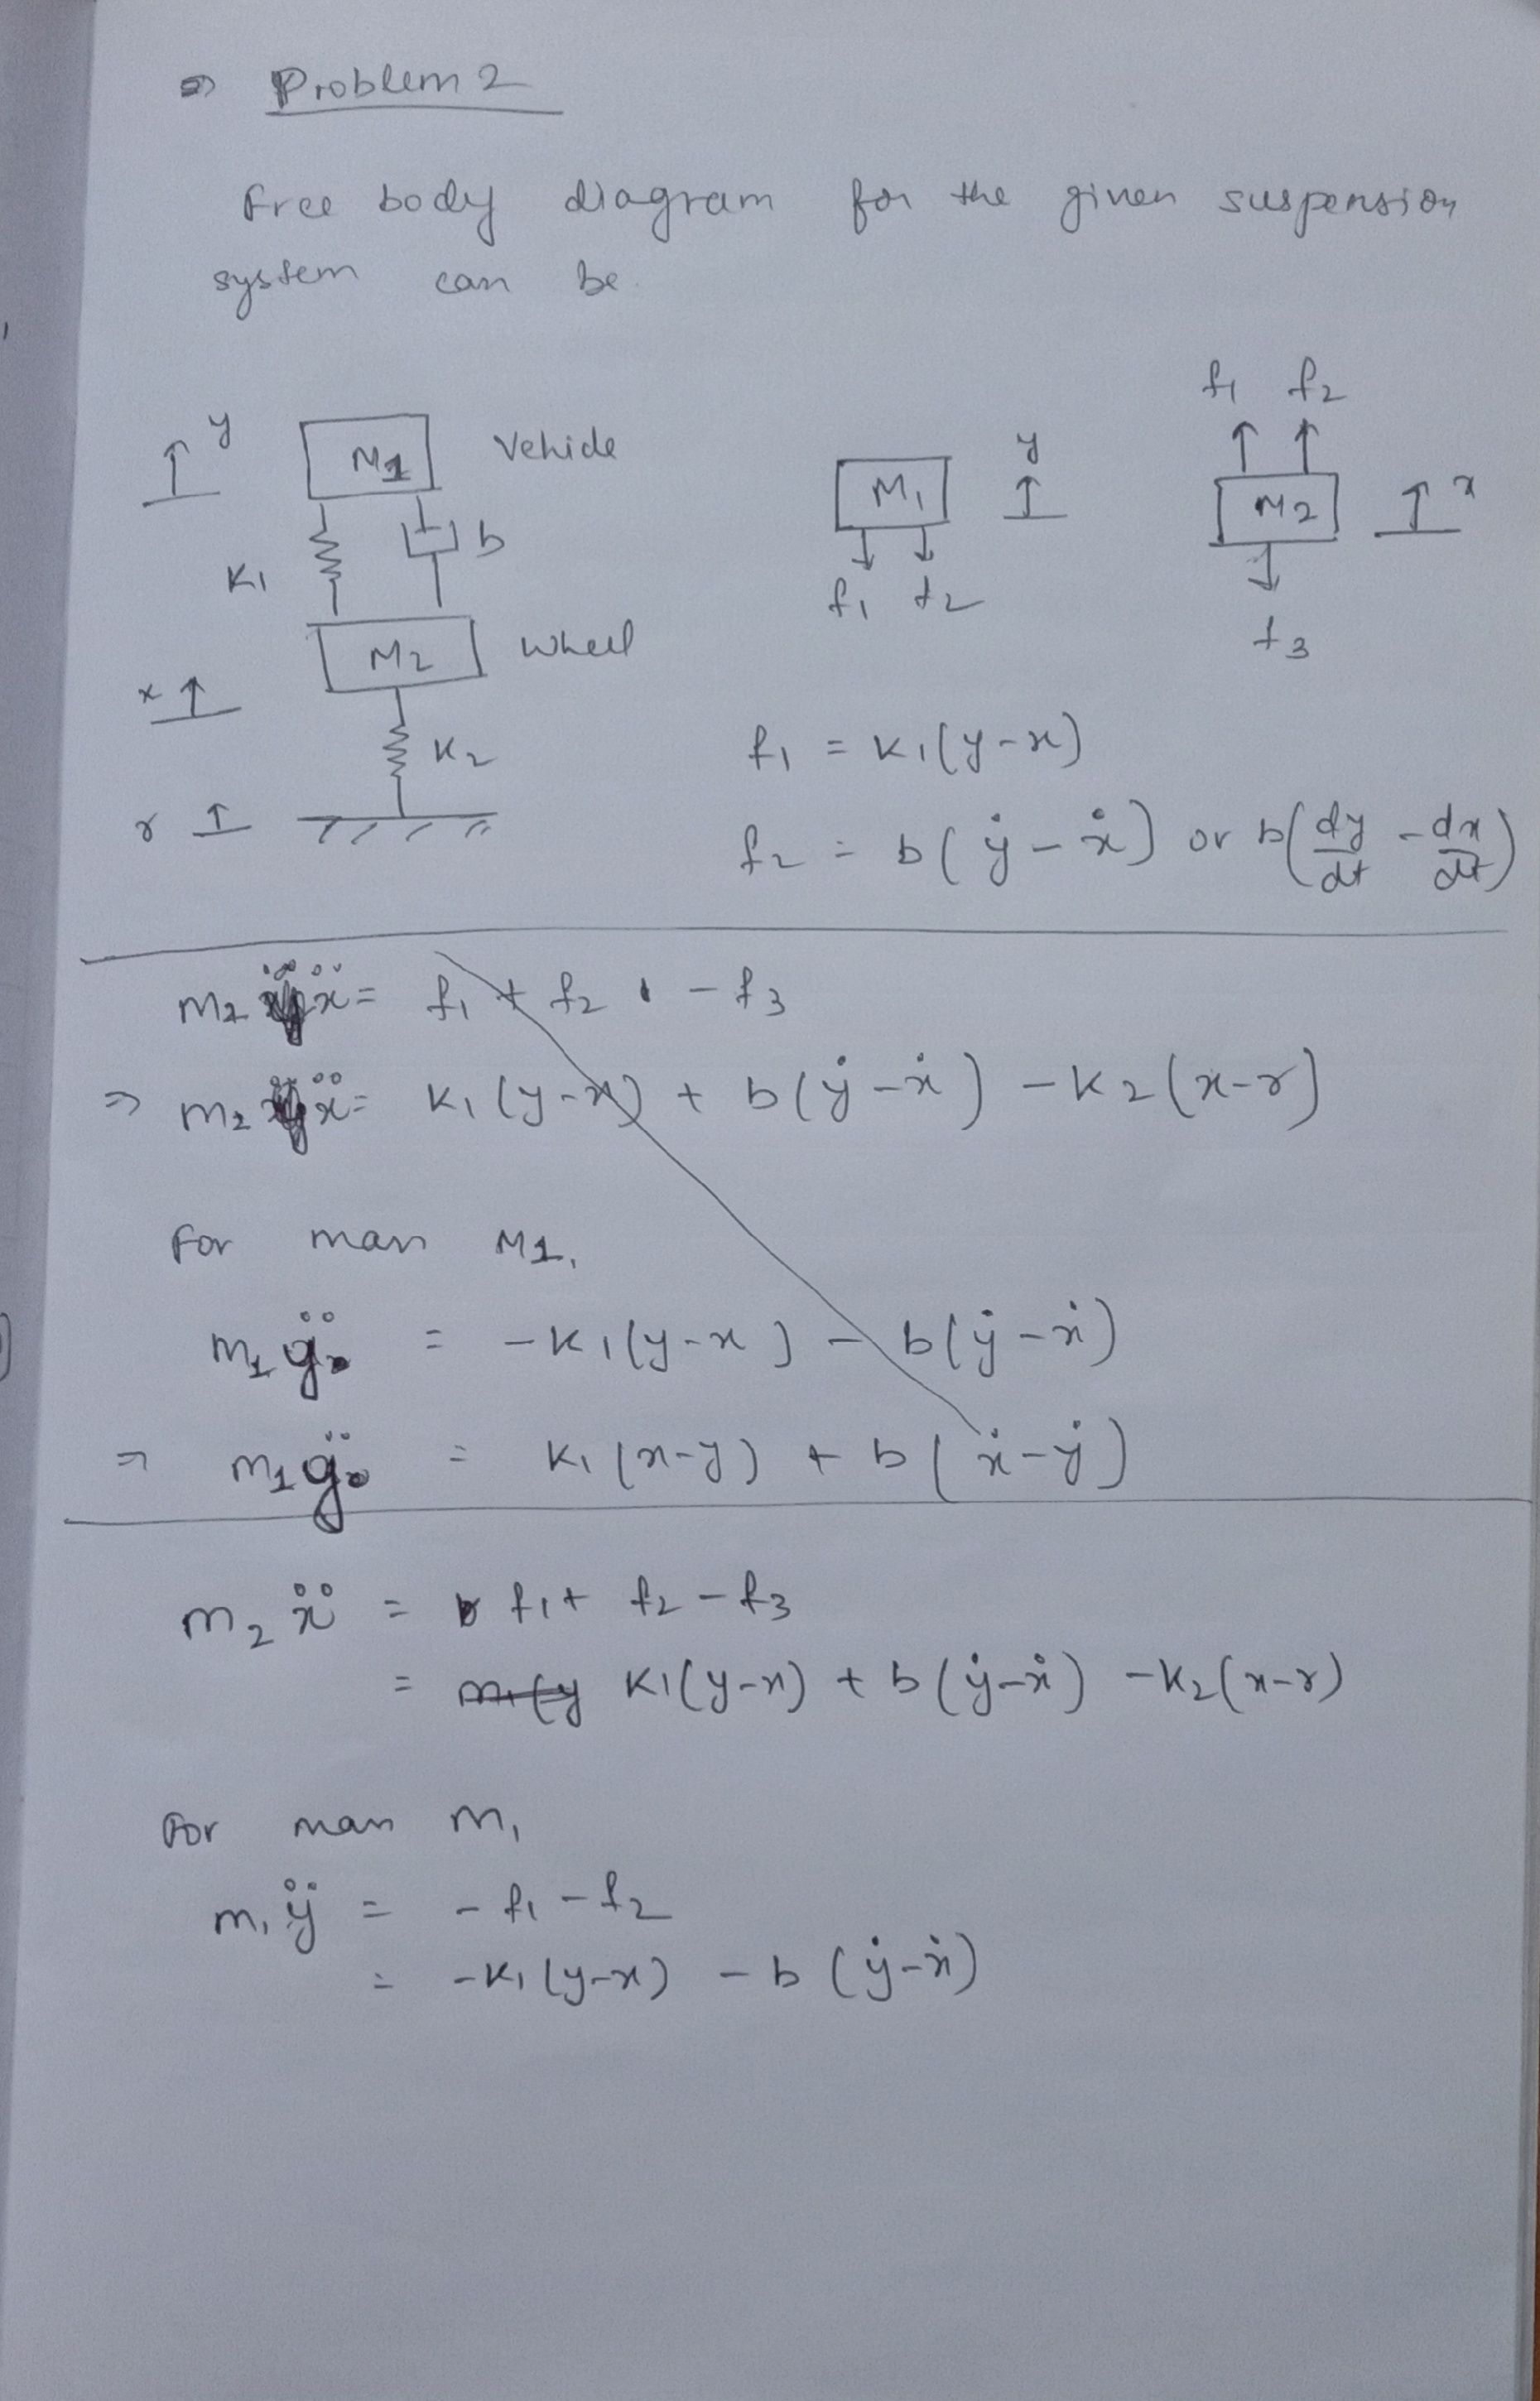 ⇒ Problem 2
free body diagram for the given suspension
system can be.
y
M1
Vehicle
K1
b
M2
Wheel
x
K2
r
M1
y
f1 f2
f1 f2
M2
x
f3
f1 = K1(y-x)
f2 = b(ẏ - ẋ) or b(dy/dt - dx/dt)
m2 ẍ = f1 + f2 - f3
⇒ m2 ẍ = K1(y-x) + b(ẏ-ẋ) - K2(x-r)
For mass M1,
m1 ÿ = -K1(y-x) - b(ẏ-ẋ)
⇒ m1 ÿ = K1(x-y) + b(ẋ-ẏ)
m2 ẍ = f1 + f2 - f3
= K1(y-x) + b(ẏ-ẋ) - K2(x-r)
For mass m1
m1 ÿ = -f1 - f2
= -K1(y-x) - b(ẏ-ẋ)